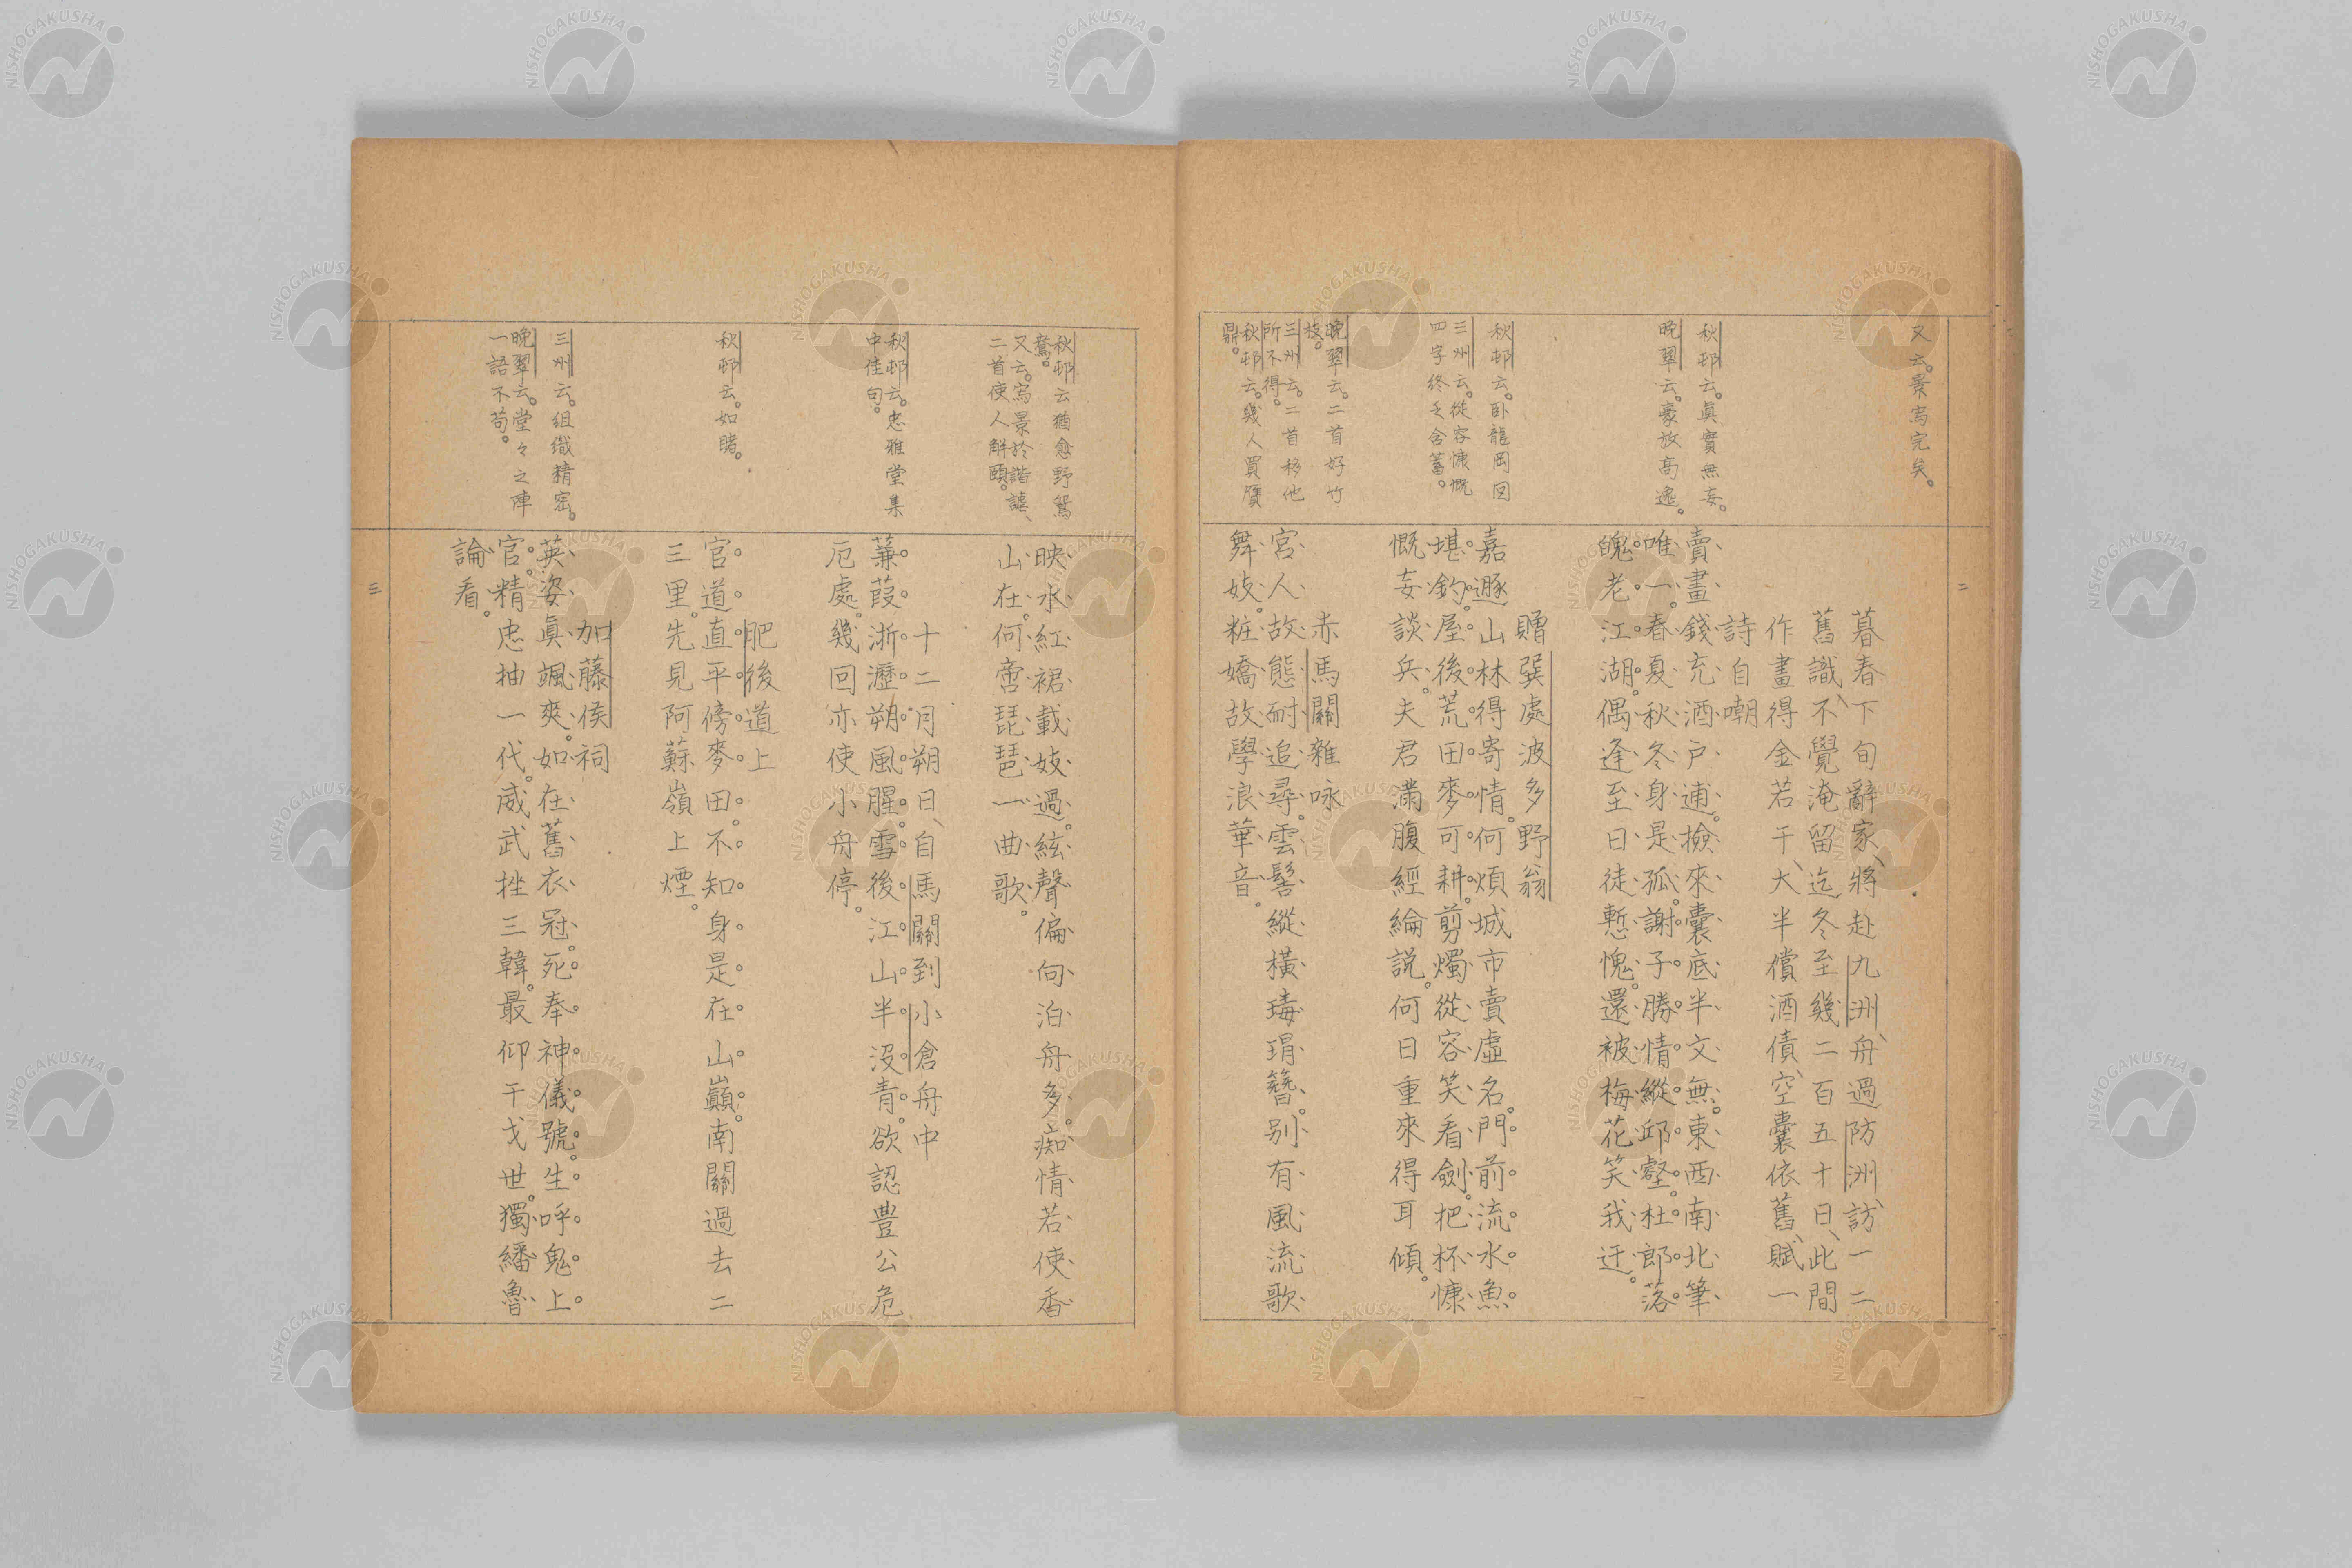 又云。景寫完矣。
秋邨云。眞實無妄。
晚翠云。豪放高逸。
秋邨云。卧龍岡図
三州云。從容慷慨
四字終乏含蓄。
晚翠云。二首好竹
枝。
三州云。二首移他
所不得。
秋邨云。幾人買贋
鼎。
二
暮春下旬辭家、將赴九洲、舟過防洲、訪一二
舊識、不覺淹留、迄冬至幾二百五十日、此間
作畫得金若干、大半償酒債、空囊依舊、賦一
詩自嘲
賣畫錢充酒戶逋。撿來囊底半文無。東西南北筆
唯一。春夏秋冬身是孤。謝子勝情縱邱壑。杜郎落
魄老江湖。偶逢至日徒慙愧。還被梅花笑我迂。
贈巽處波多野翁
嘉遯山林得寄情。何煩城市賣虛名。門前流水魚
堪釣。屋後荒田麥可耕。剪燭從容笑看劍。把杯慷
慨妄談兵。夫君滿腹經綸説。何日重來得耳傾。
赤馬關雜咏
宮人故態耐追尋。雲髻縱橫瑇瑁簪。別有風流歌
舞妓。粧嬌故學浪華音。
秋邨云猶愈野鴛
鴦。
又云。寫景於諧謔、
二首使人解頤。
秋邨云。忠雅堂集
中佳句。
秋邨云。如睹。
三州云。組織精密。
晚翠云。堂々之陣
一語不苟。
映水紅裙載妓過。絃聲偏向泊舟多。痴情若使香
山在。何啻琵琶一曲歌。
十二月朔日、自馬關到小倉舟中
蒹葭淅瀝朔風腥。雪後江山半沒青。欲認豊公危
厄處。幾回亦使小舟停。
肥後道上
官道直平傍麥田。不知身是在山巓。南關過去二
三里。先見阿蘇嶺上煙。
加藤侯祠
英姿眞颯爽。如在舊衣冠。死奉神儀號。生呼鬼上
官。精忠抽一代。威武挫三韓。最仰干戈世。獨繙魯
論看。
三
NISHOGAKUSHA